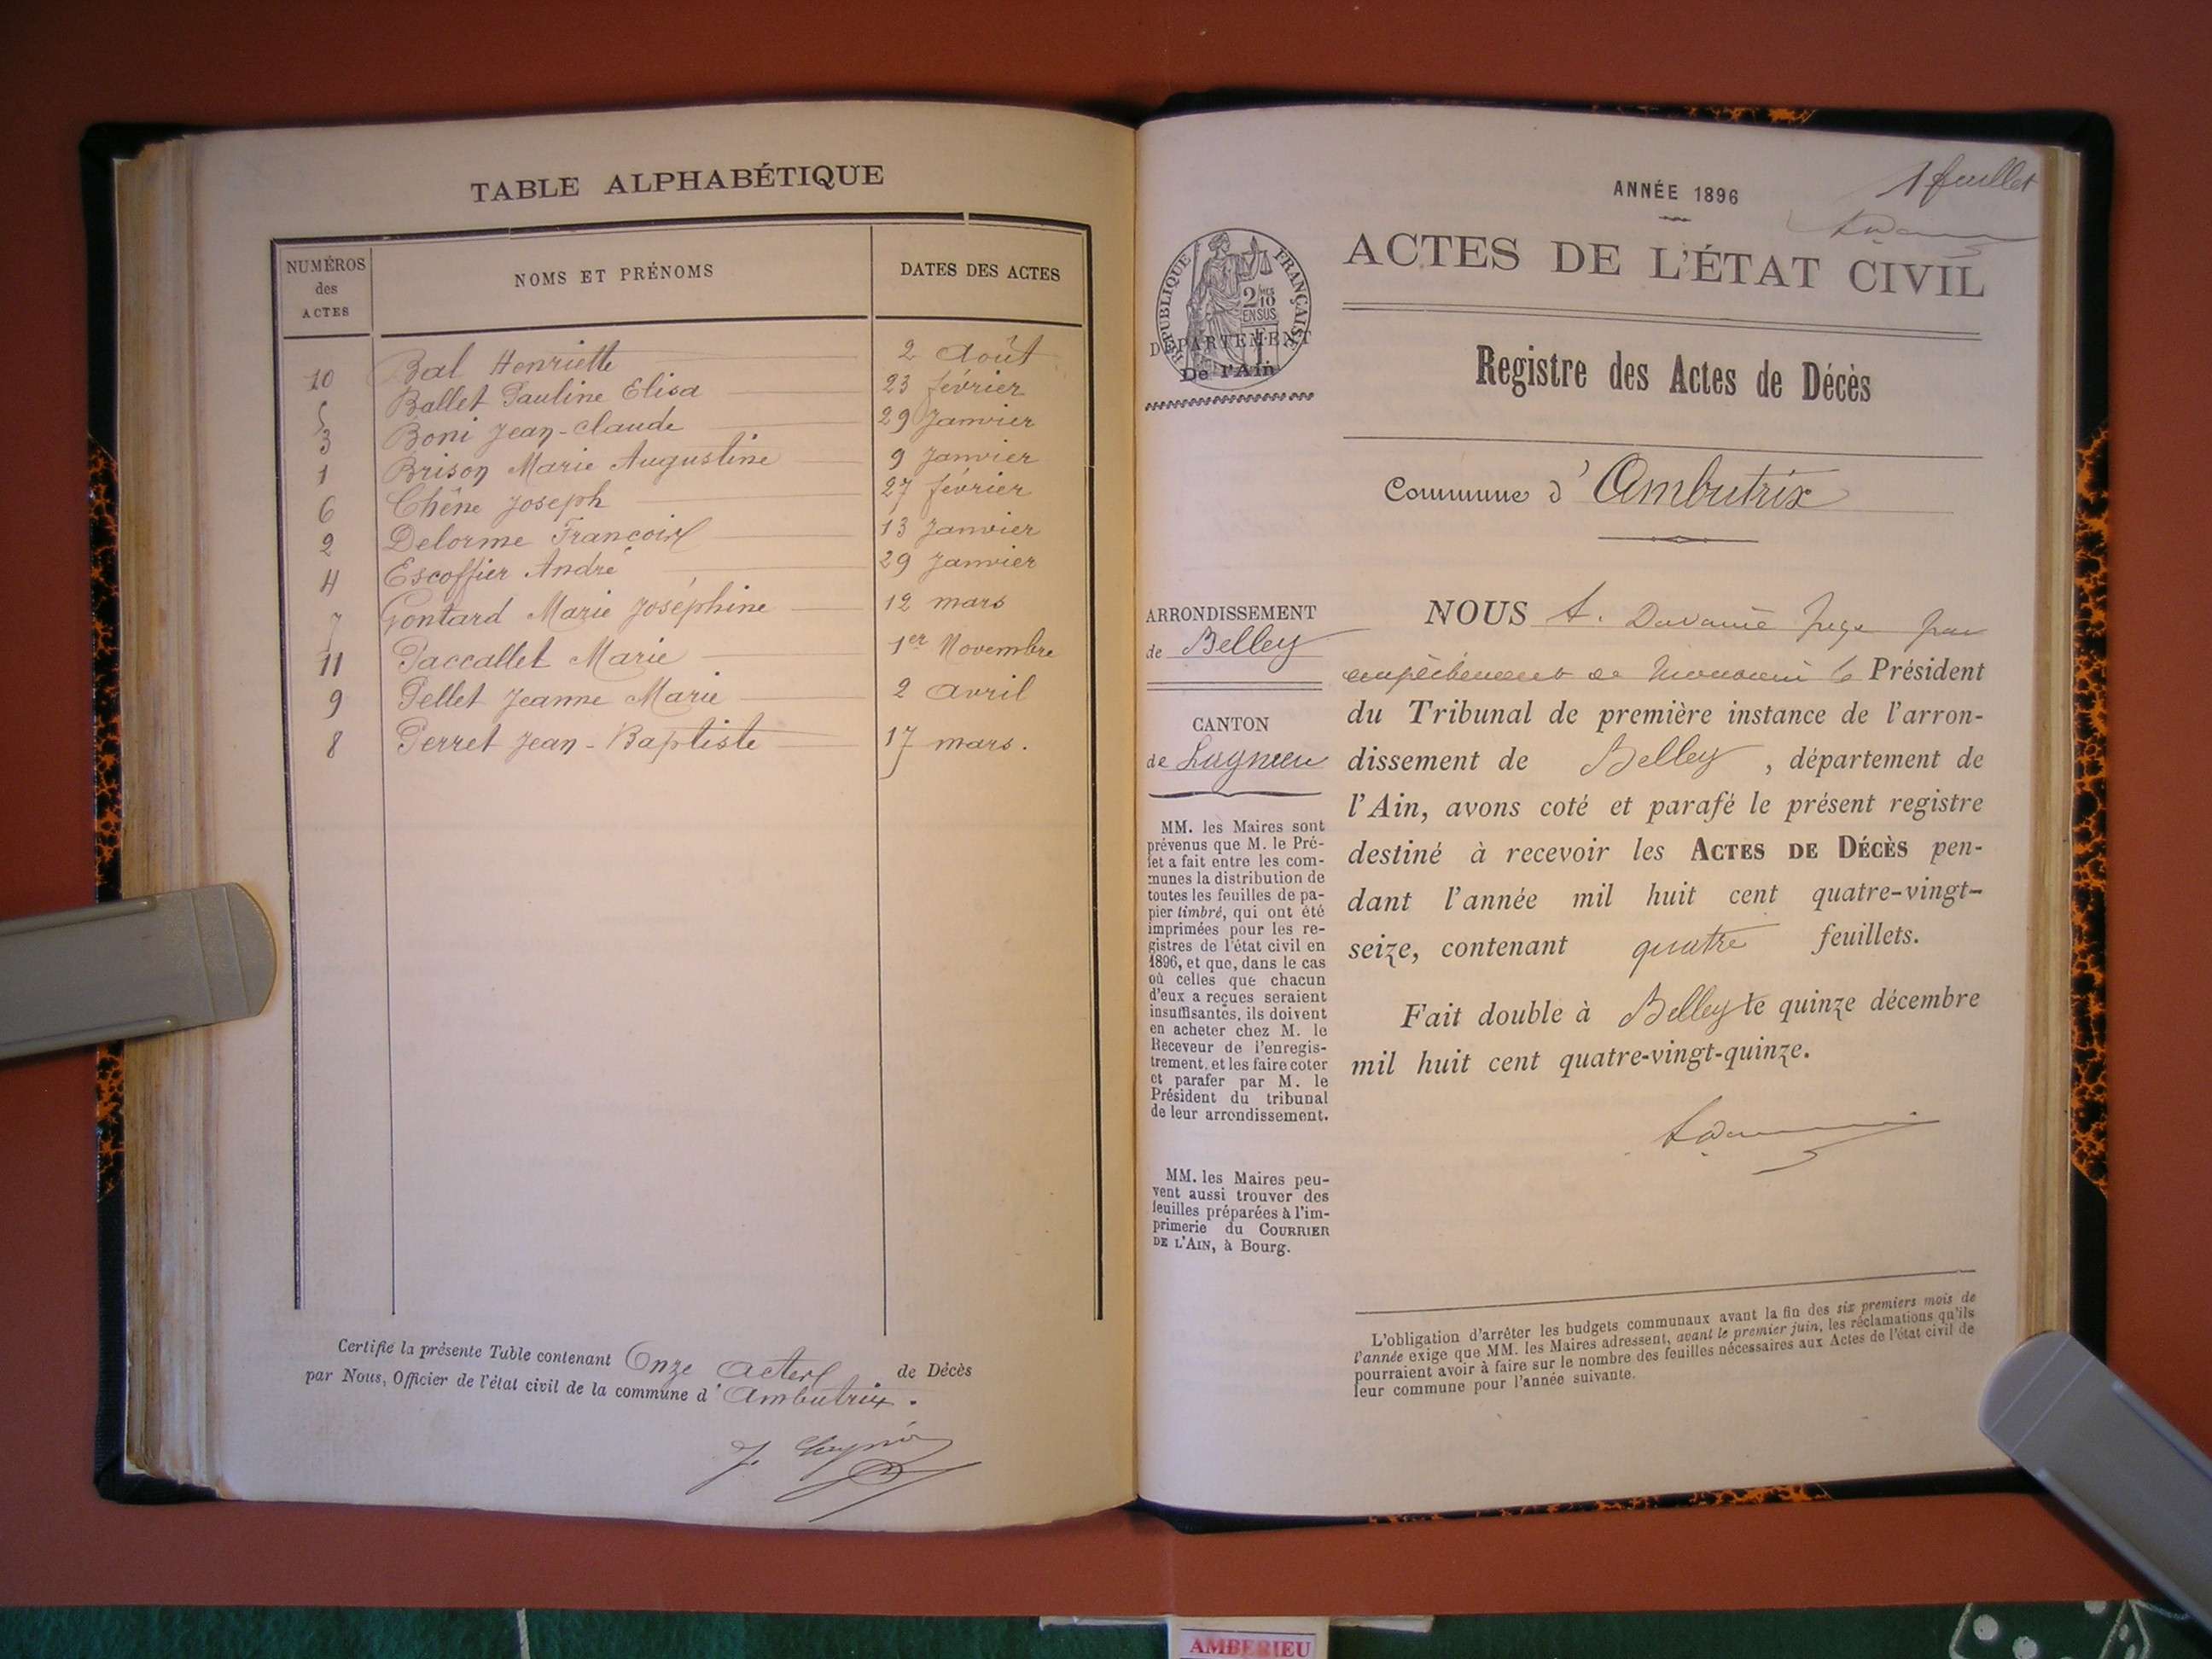 TABLE ALPHABÉTIQUE
NUMÉROS des ACTES
NOMS ET PRÉNOMS
DATES DES ACTES
10 Bal Henriette 2 Août
5 Ballet Pauline Elisa 23 février
3 Boni Jean-Claude 29 Janvier
1 Brison Marie Augustine 9 Janvier
6 Chêne Joseph 27 février
2 Delorme François 13 Janvier
4 Escoffier André 29 Janvier
7 Gontard Marie Joséphine 12 mars
11 Paccallet Marie 1er Novembre
9 Pellet Jeanne Marie 2 Avril
8 Perret Jean-Baptiste 17 mars.
Certifié la présente Table contenant Onze Actes de Décès
par Nous, Officier de l'état civil de la commune d'Ambutrix.
1 feuillet
ANNÉE 1896
ACTES DE L'ÉTAT CIVIL
RÉPUBLIQUE FRANÇAISE
2/10 EN SUS
DÉPARTEMENT
De l'Ain
Registre des Actes de Décès
Commune d'Ambutrix
ARRONDISSEMENT
de Belley
CANTON
de Lagnieu
MM. les Maires sont
prévenus que M. le Pré-
fet a fait entre les com-
munes la distribution de
toutes les feuilles de pa-
pier timbré, qui ont été
imprimées pour les re-
gistres de l'état civil en
1896, et que, dans le cas
où celles que chacun
d'eux a reçues seraient
insuffisantes, ils doivent
en acheter chez M. le
Receveur de l'enregis-
trement, et les faire coter
et parafer par M. le
Président du tribunal
de leur arrondissement.
MM. les Maires peu-
vent aussi trouver des
feuilles préparées à l'im-
primerie du COURRIER
DE L'AIN, à Bourg.
NOUS A. Juge par
empêchement de Monsieur le Président
du Tribunal de première instance de l'arron-
dissement de Belley, département de
l'Ain, avons coté et parafé le présent registre
destiné à recevoir les ACTES DE DÉCÈS pen-
dant l'année mil huit cent quatre-vingt-
seize, contenant quatre feuillets.
Fait double à Belley le quinze décembre
mil huit cent quatre-vingt-quinze.
L'obligation d'arrêter les budgets communaux avant la fin des six premiers mois de
l'année exige que MM. les Maires adressent, avant le premier juin, les réclamations qu'ils
pourraient avoir à faire sur le nombre des feuilles nécessaires aux Actes de l'état civil de
leur commune pour l'année suivante.
AMBERIEU